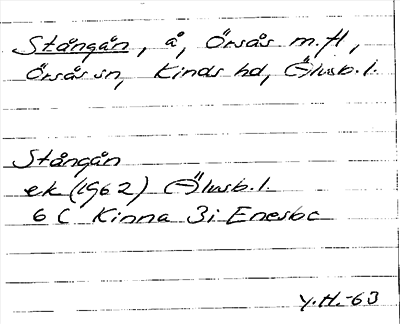 Stångån, å, Örsås m.fl,
Örsås sn, Kinds hd, Älvsb.l.
Stångån
ek (1962) Älvsb.l.
6 C Kinna 3i Enesbc
Y.H.-63